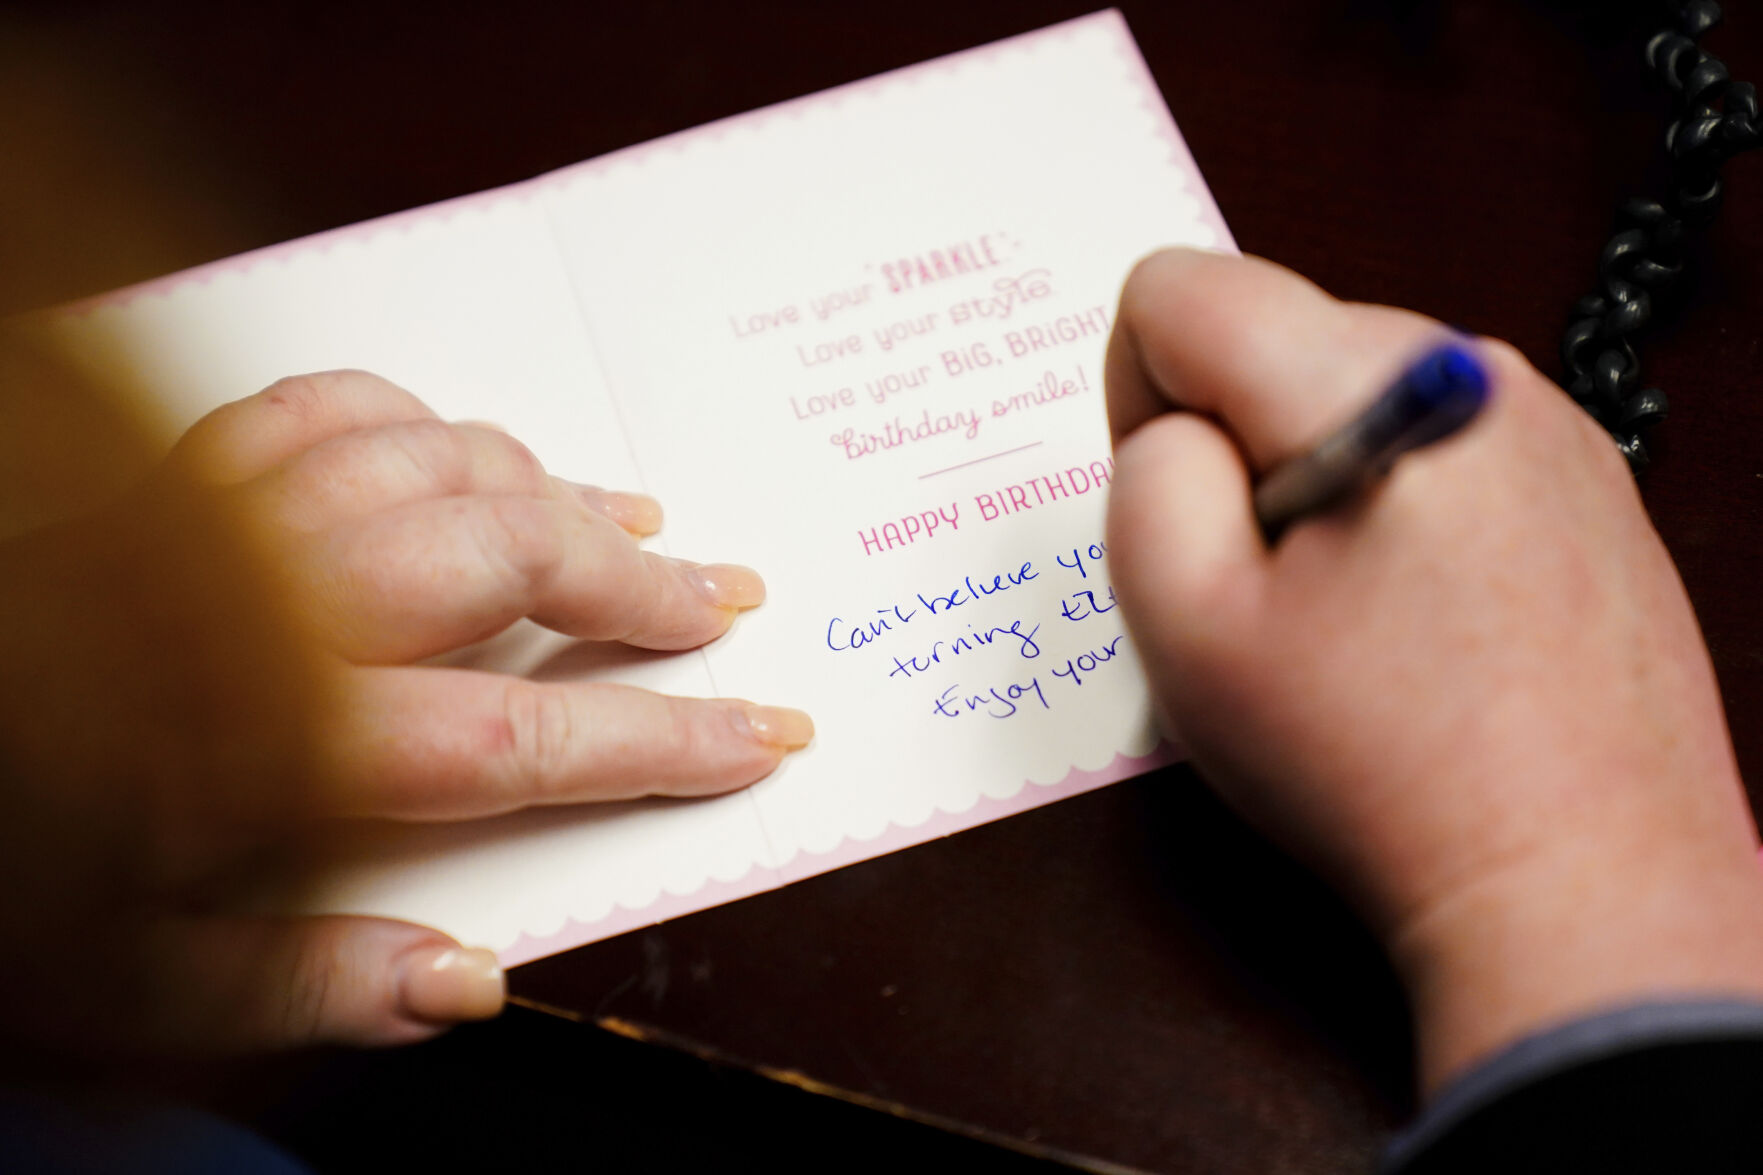 Love your SPARKLE
Love your style
Love your BiG, BRiGHT
birthday smile!
HAPPY BIRTHDA
Can't believe yo
turning
Enjoy your